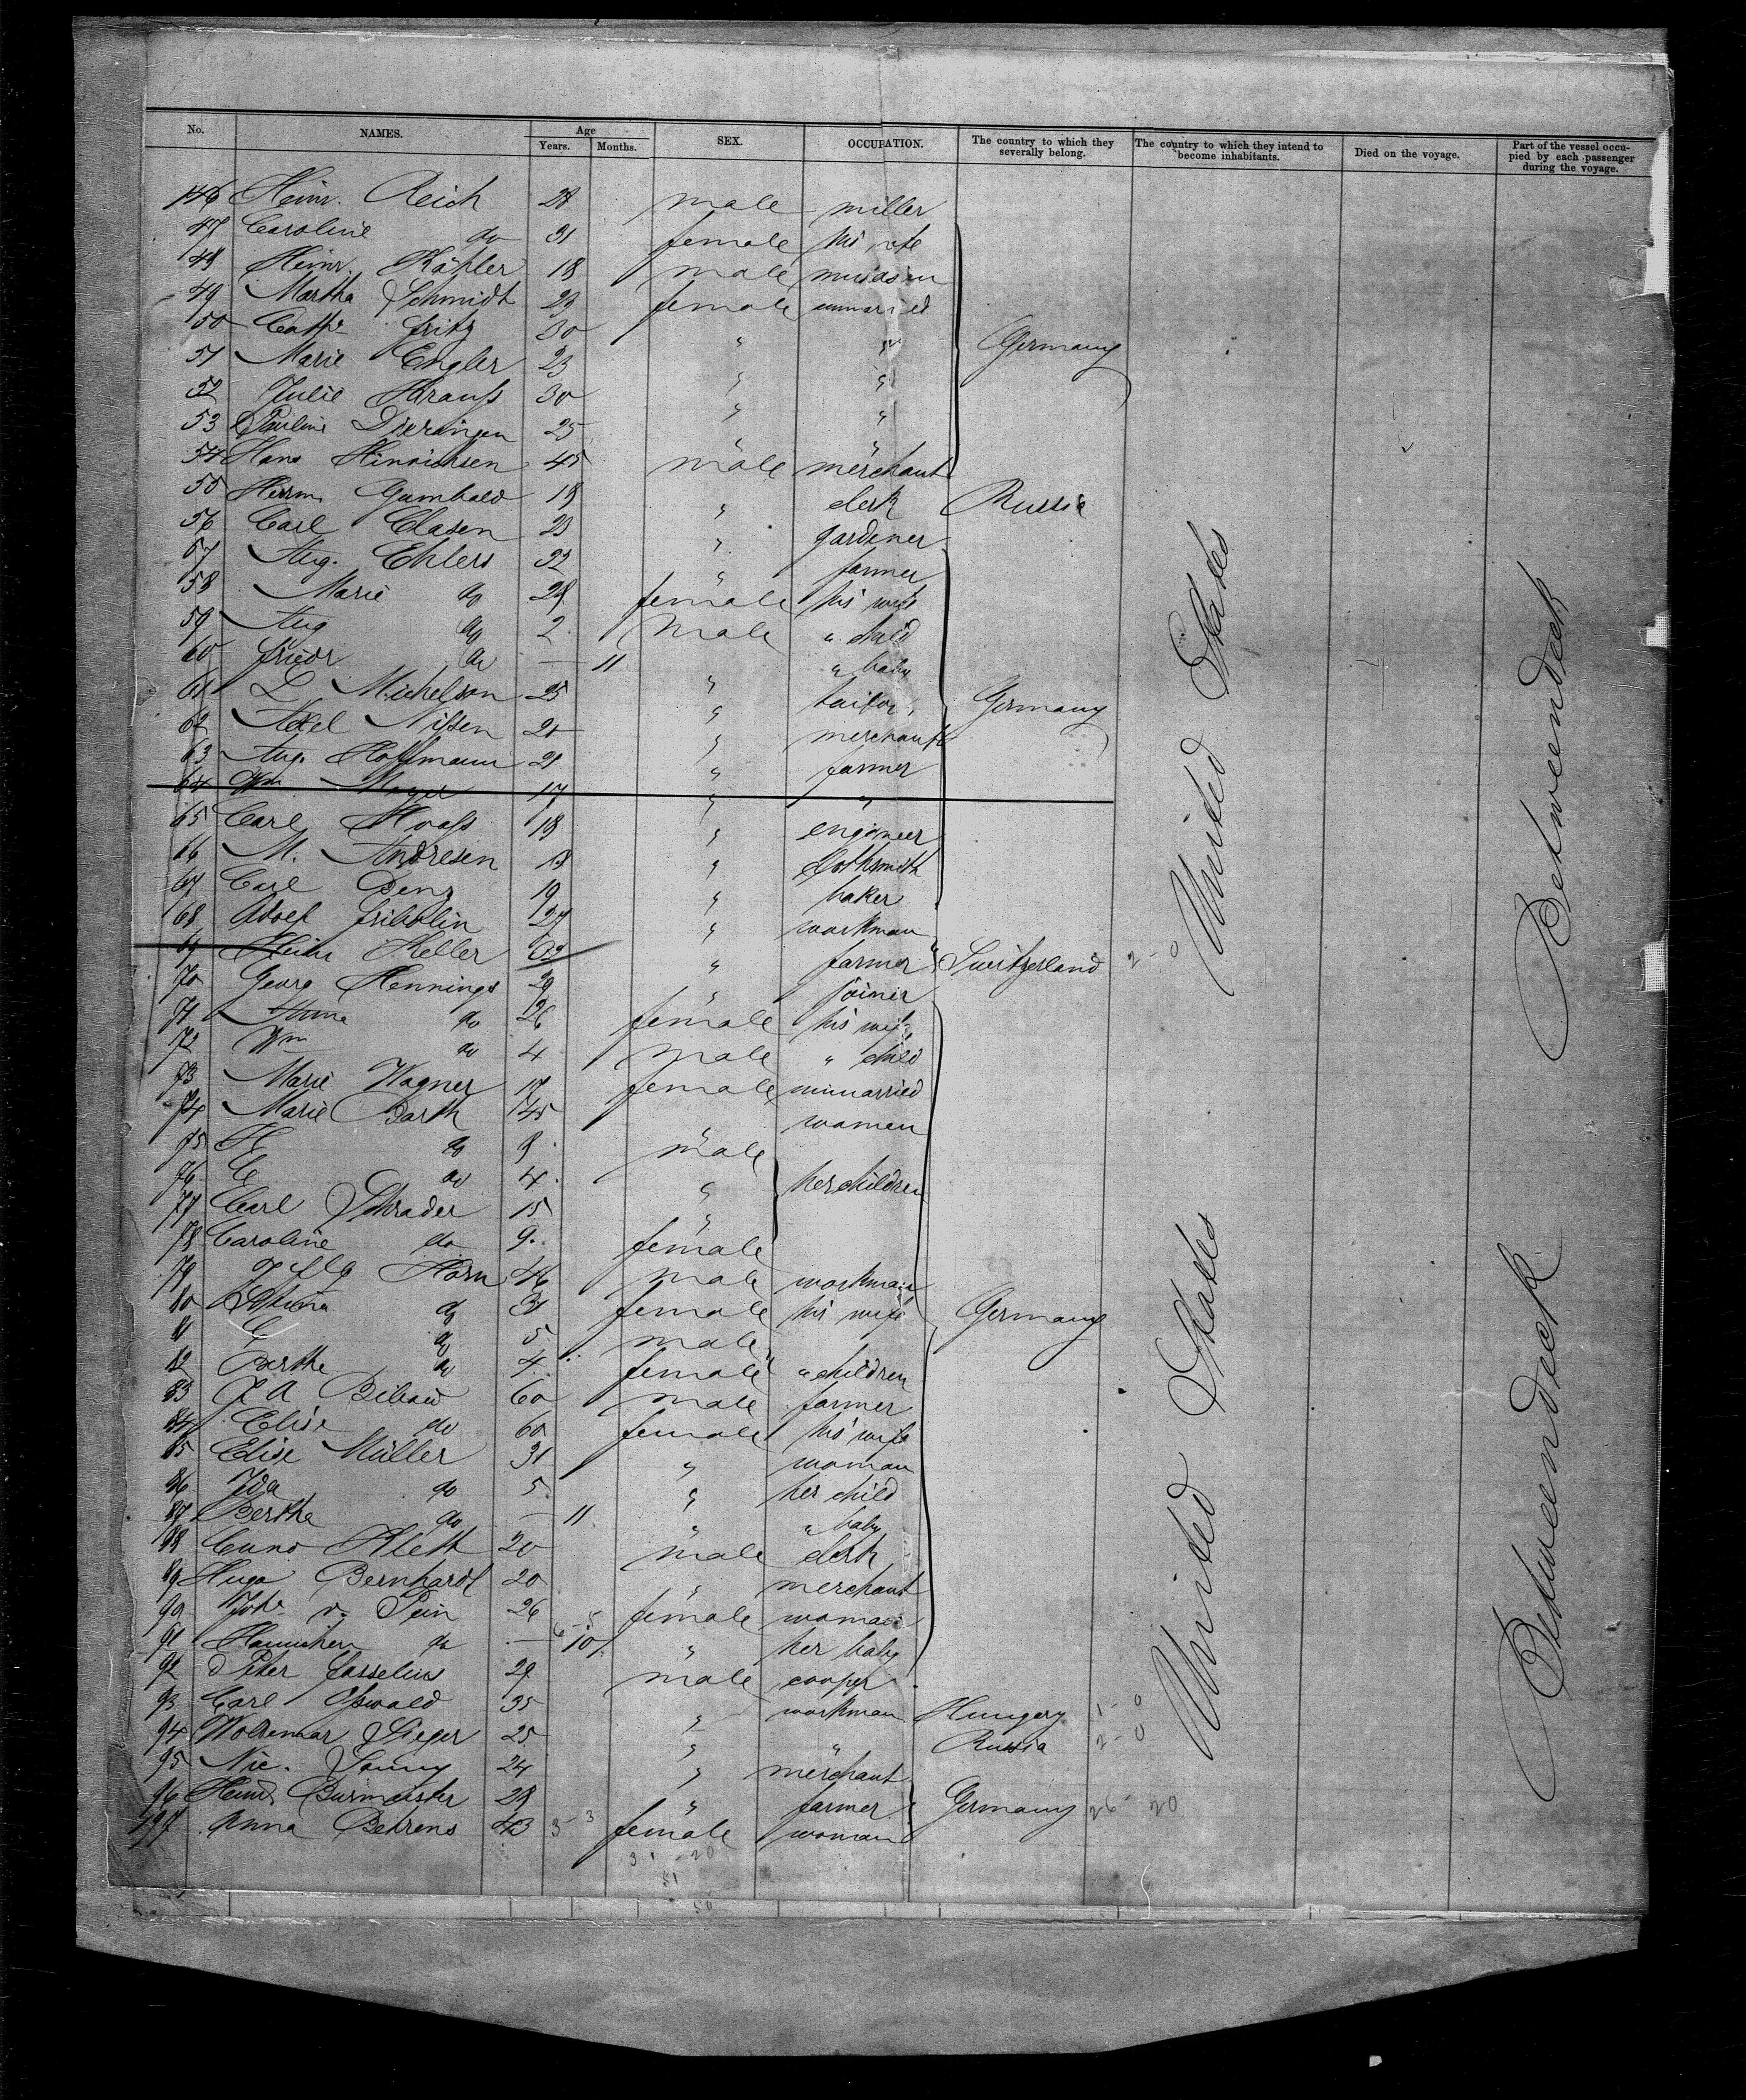 No. NAMES. Age Years. Months. SEX. OCCUPATION. The country to which they severally belong. The country to which they intend to become inhabitants. Died on the voyage. Part of the vessel occupied by each passenger during the voyage.
146 Heinr. Reich 28 male miller
47 Caroline do 31 female his wife
48 Heinr. Kähler 18 male musician
49 Martha Schmidt 23 female unmarried
50 Cathr Fritz 30 " "
51 Marie Engler 23 " " Germany
52 Julie Krauss 30 " "
53 Pauline 25 " "
54 Hans Hinrichsen 45 male merchant
55 Herrm Gumbald 18 " clerk Russia
56 Carl Clasen 23 " gardener
57 Aug. Ehlers 32 " farmer
58 Marie do 28 female his wife
59 Aug do 2 male " child
60 Friedr do — 11 " " baby
61 L Michelson 25 " tailor Germany
62 Axel Nissen 20 " merchant
63 Aug. Hoffmann 21 " farmer
64 Wm Mayer 17 " "
65 Carl Haass 18 " engineer
66 M. Andresen 18 "
67 Carl Benz 19 " baker
68 Adolf Fribolin 27 " workman
69 Heinr Keller " farmer Switzerland 2-0
70 Georg Hennings 29 " joiner
71 Anna do 26 female his wife
72 Wm do 4 male " child
73 Marie Wagner 17 female unmarried
74 Marie Barth 45 " women
75 H do 9 male
76 C do 4 " her children
77 Carl Schrader 15 "
78 Caroline do 9 female
79 Horn 46 male workman
80 do 31 female his wife Germany
81 C do 5 male
82 Bertha do 4 female " children
83 J A 60 male farmer
84 Elise do 60 female his wife
85 Elise Müller 31 " woman
86 Ida do 5 " her child
87 Bertha do — 11 " " baby
88 Cuno Klett 20 male clerk
89 Hugo Bernhardt 20 " merchant
90 Joh v. Pein 26 female woman
91 do — 10 " her baby
92 Peter Casselius 29 male cooper
93 Carl Osswald 35 " workman Hungary 1-0
94 Woldemar Sieger 25 " " Russia 2-0
95 Nic. 24 " merchant
96 Heinr. Burmeister 28 " farmer Germany 26-20
197 Anna Behrens 43 female woman
31-20
51
United States
United States
Betweendeck
Betweendeck